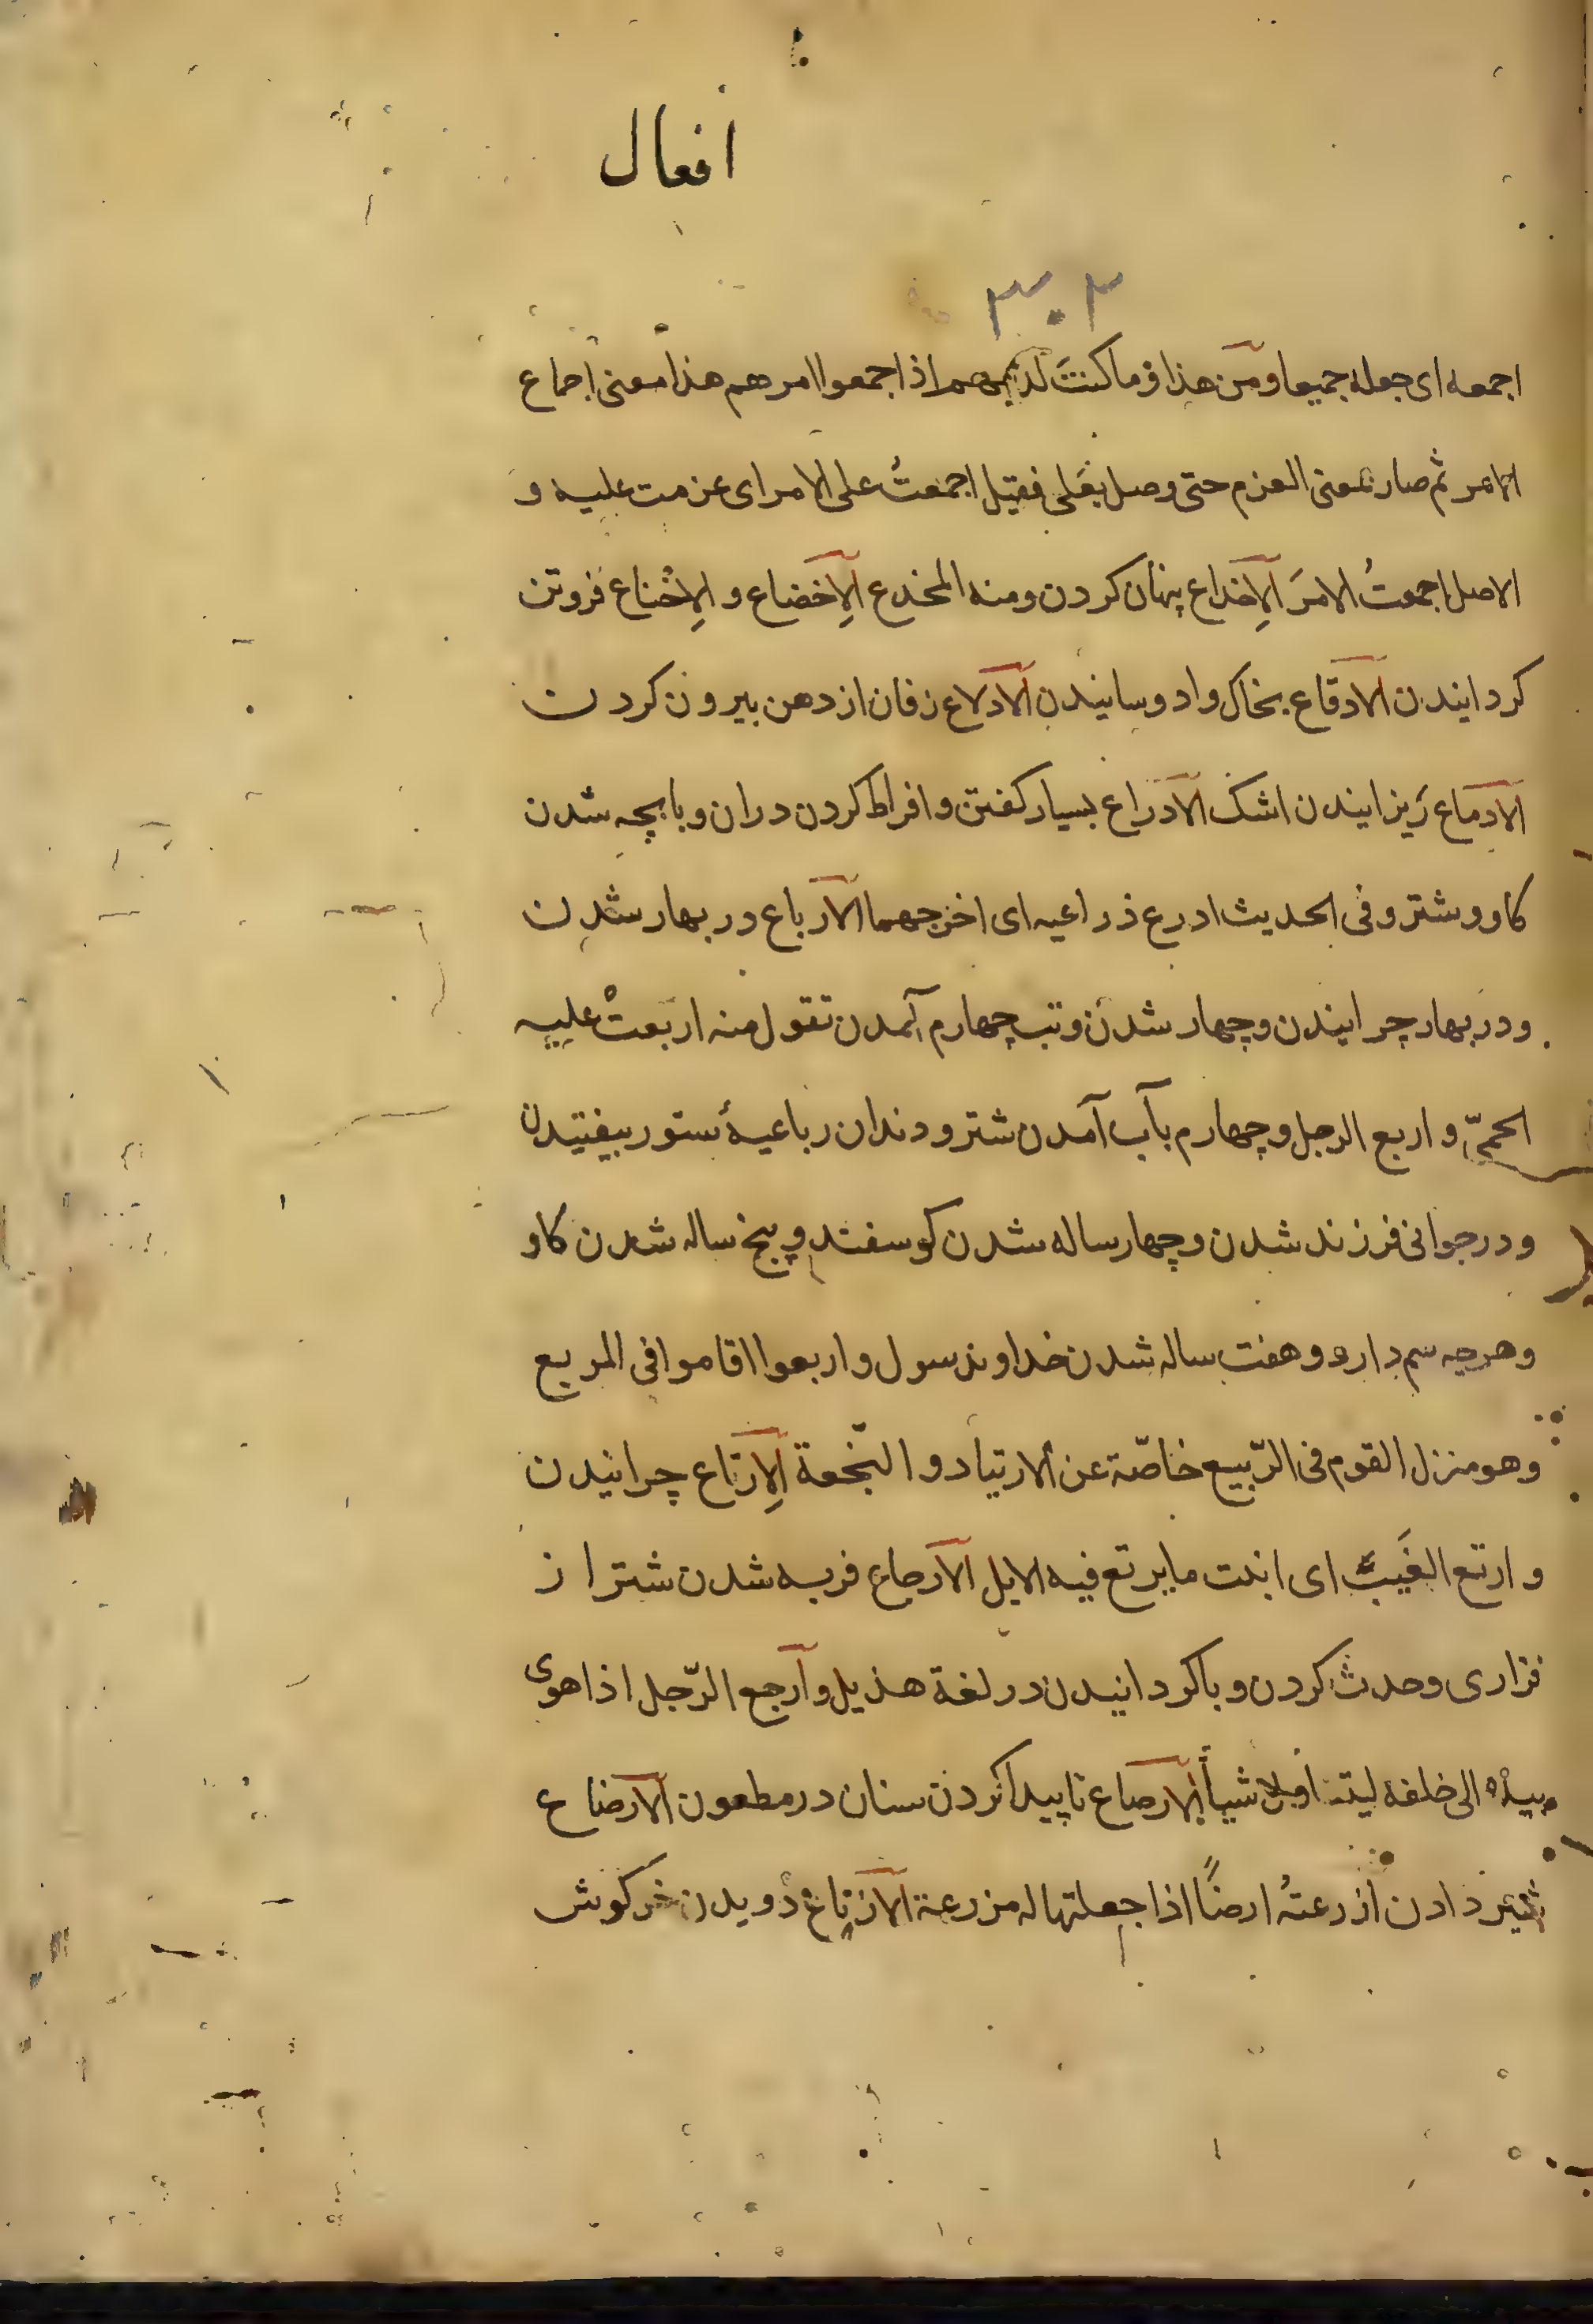 افعال
۳۰۳
اجمعه ای جعله جمیعا ومن هذا وما کنتَ لدیهم اذ اجمعوا امرهم هذا معنی اجماع
الامر ثم صار بمعنی العزم حتی وصل بعَلی فقیل اجمعتُ علی الامر ای عزمت علیه و
الاصل اجمعتُ الامرَ الاِخداع پنهان کردن ومنه المخدع الاِخضاع و الاِخْناع فروتن
کردانیدن الادقاع بخاک وادوسانیدن الادلاع زفان از دهن بیرون کردن
الادماع ریزانیدن اشک الاذراع بسیار کفتن و افراط کردن دران و بابچه شدن
کاو وشتر وفی الحدیث اذرع ذراعیه ای اخرجهما الارباع در بهار شدن
ودر بهار چرانیدن وچهار شدن وتب چهارم آمدن تقول منه اربعتْ علیه
الحمیّ و اربع الرجل وچهارم بآب آمدن شتر ودندان رباعیهٔ ستور بیفتیدن
ودر جوانی فرزند شدن وچهار ساله شدن کوسفند وپنج ساله شدن کاو
وهرچه سم دارد وهفت ساله شدن خداوند سول واربعوا اقاموا فی المربع
وهو منزل القوم فی الرّبیع خاصّة عن الارتیاد و النّجعة الاِرتاع چرانیدن
و ارتع الغَیث ای انبت ما یرتع فیه الابل الارجاع فربه شدن شتر از
نزاری وحدث کردن وباکردانیدن در لغة هذیل وارجع الرّجل اذا هوی
بیده الی خلفه لیتناول شیأ الارصاع ناپیدا کردن سنان در مطعون الارضاع
شیر دادن ازرعتهُ ارضًا اذا جعلتها له مزرعة الازماع دویدن خرکوش